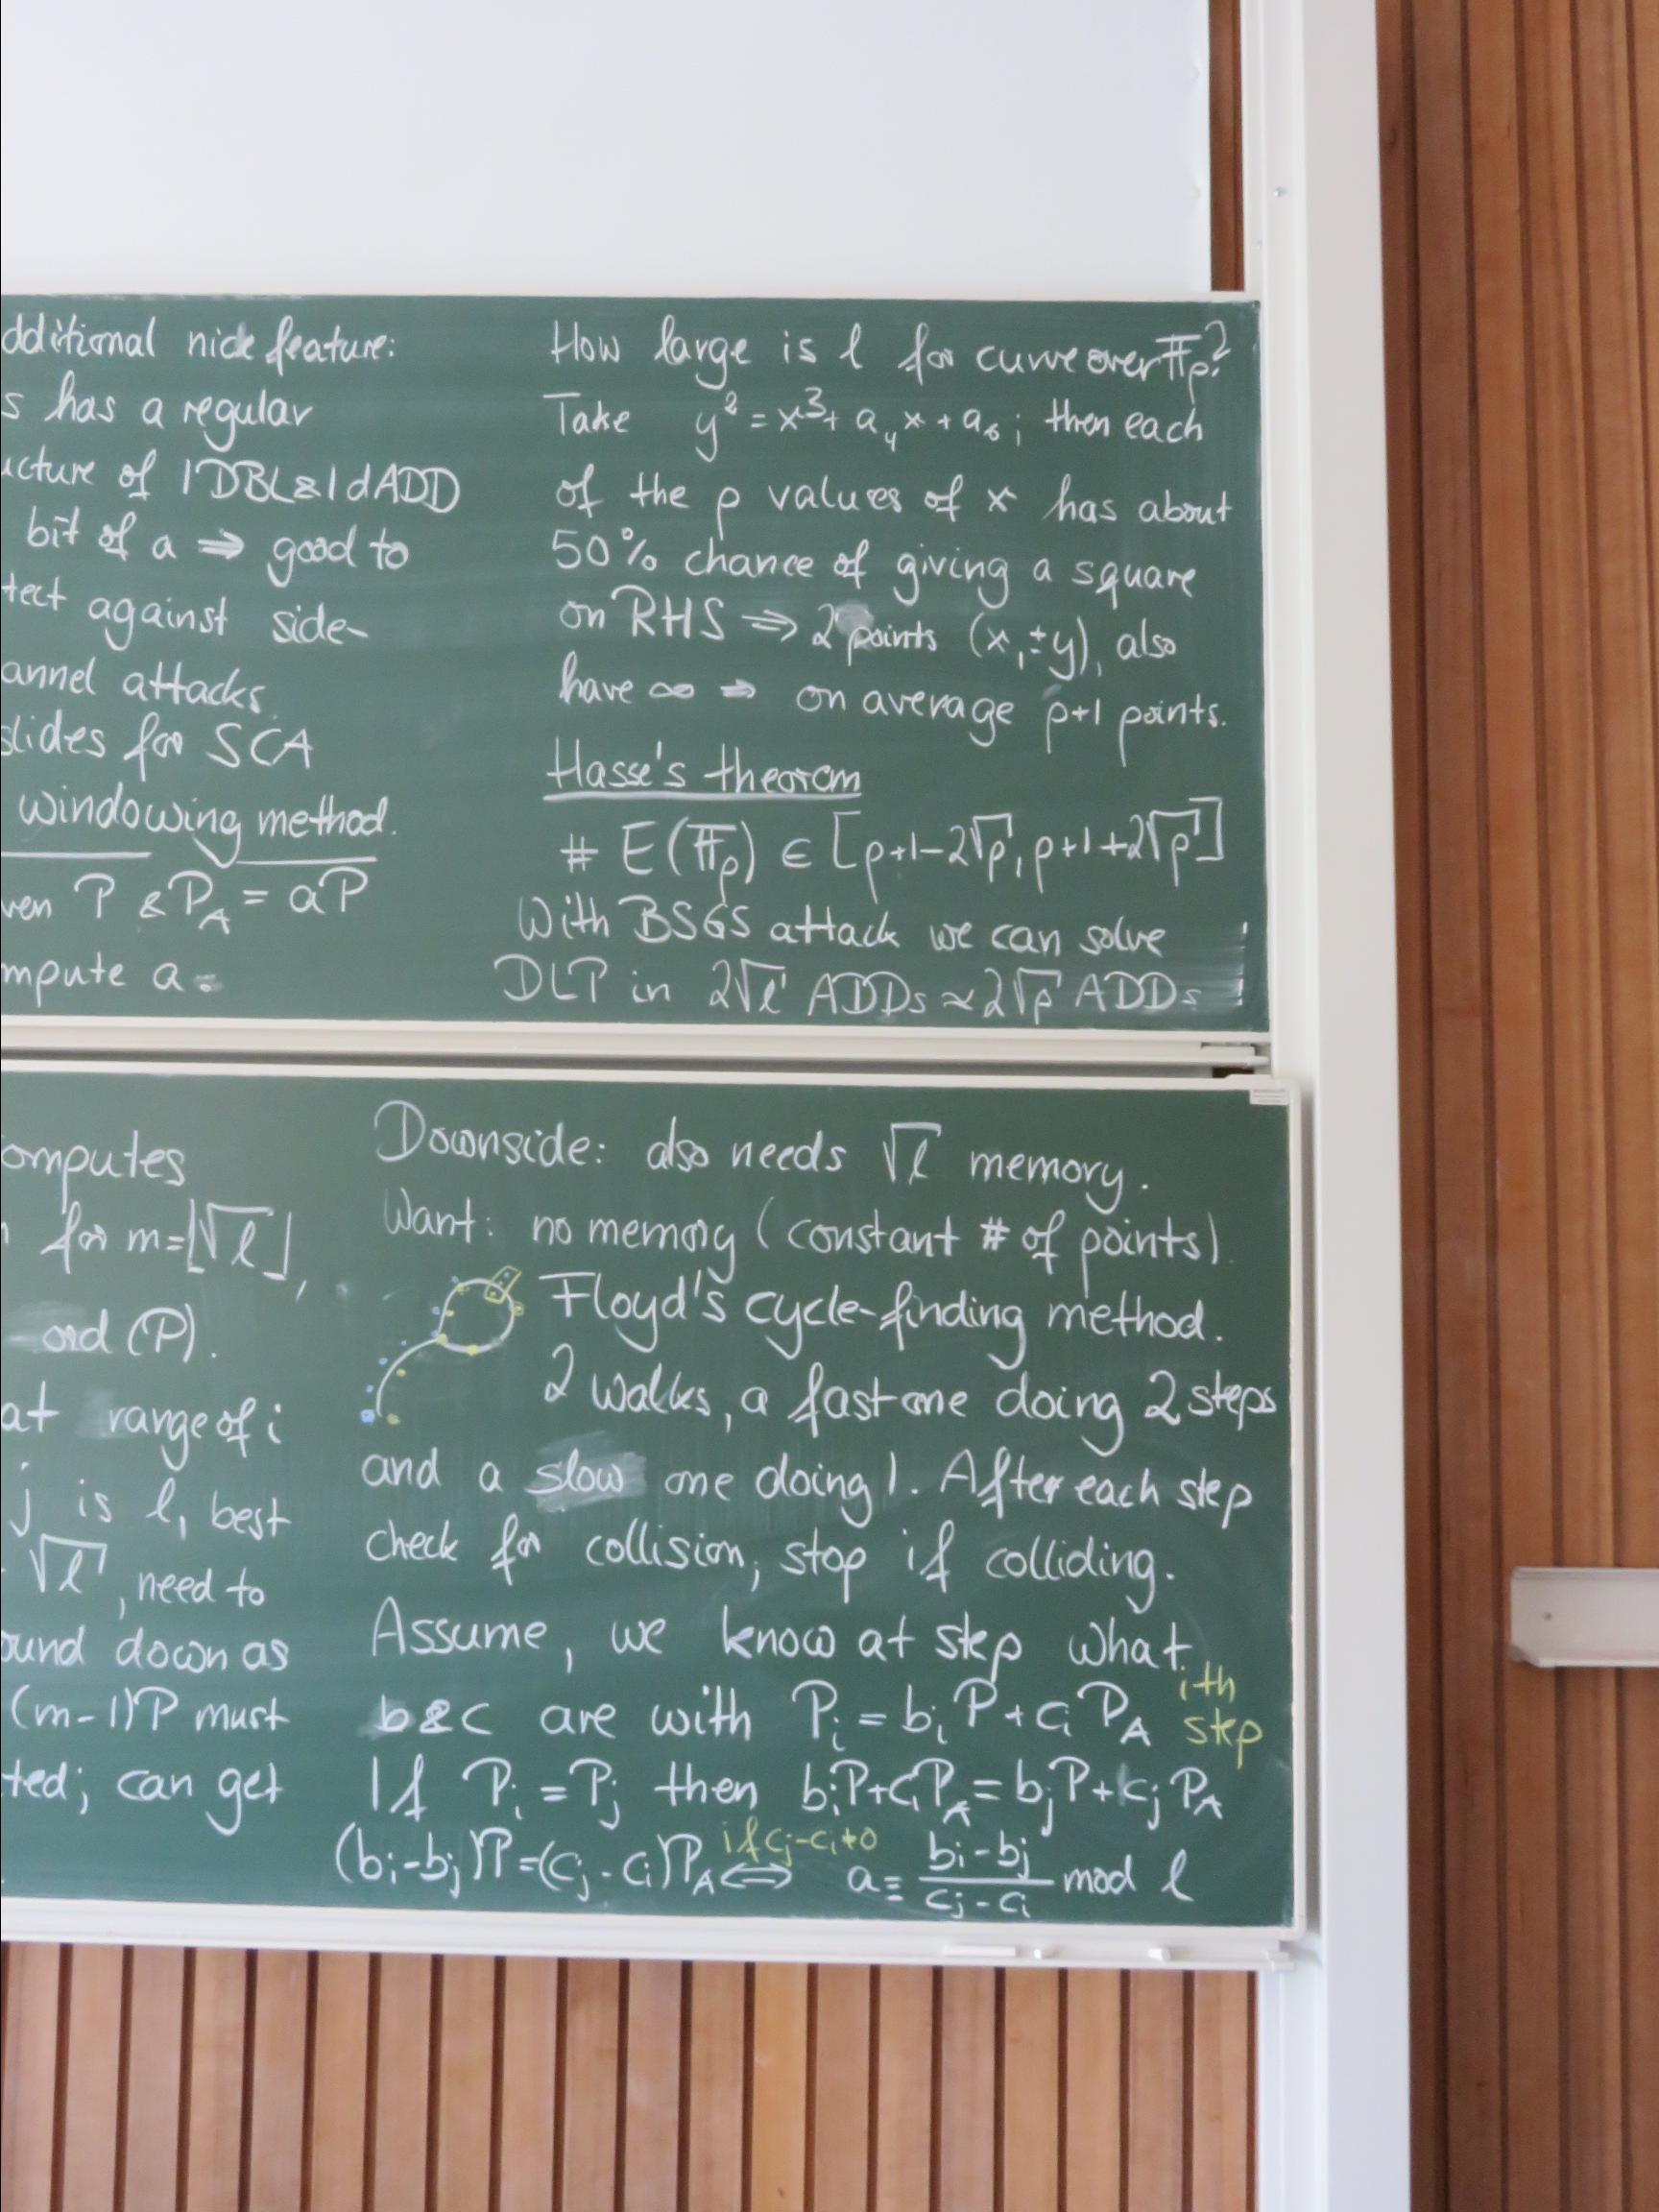 dditional nice feature:
s has a regular
ucture of 1DBL&1dADD
bit of a ⇒ good to
tect against side-
annel attacks.
slides for SCA
windowing method.
ven P & P_A = aP
mpute a.
How large is l for curve over 𝔽_p?
Take y² = x³ + a₄x + a₆; then each
of the p values of x has about
50% chance of giving a square
on RHS ⇒ 2 points (x,±y), also
have ∞ ⇒ on average p+1 points.
Hasse's theorem
# E(𝔽_p) ∈ [p+1-2√p, p+1+2√p]
With BSGS attack we can solve
DLP in 2√l ADDs ≈ 2√p ADDs
omputes
for m=⌊√l⌋,
ord (P).
at range of i
j is l, best
√l, need to
ound down as
(m-1)P must
ted; can get
Downside: also needs √l memory.
Want: no memory (constant # of points).
Floyd's cycle-finding method.
2 walks, a fast one doing 2 steps
and a slow one doing 1. After each step
check for collision; stop if colliding.
Assume, we know at step what
b&c are with P_i = b_i P + c_i P_A ith step
If P_i = P_j then b_i P + c_i P_A = b_j P + c_j P_A
(b_i - b_j)P = (c_j - c_i)P_A if c_j - c_i ≠ 0 ⟺ a ≡ (b_i - b_j)/(c_j - c_i) mod l